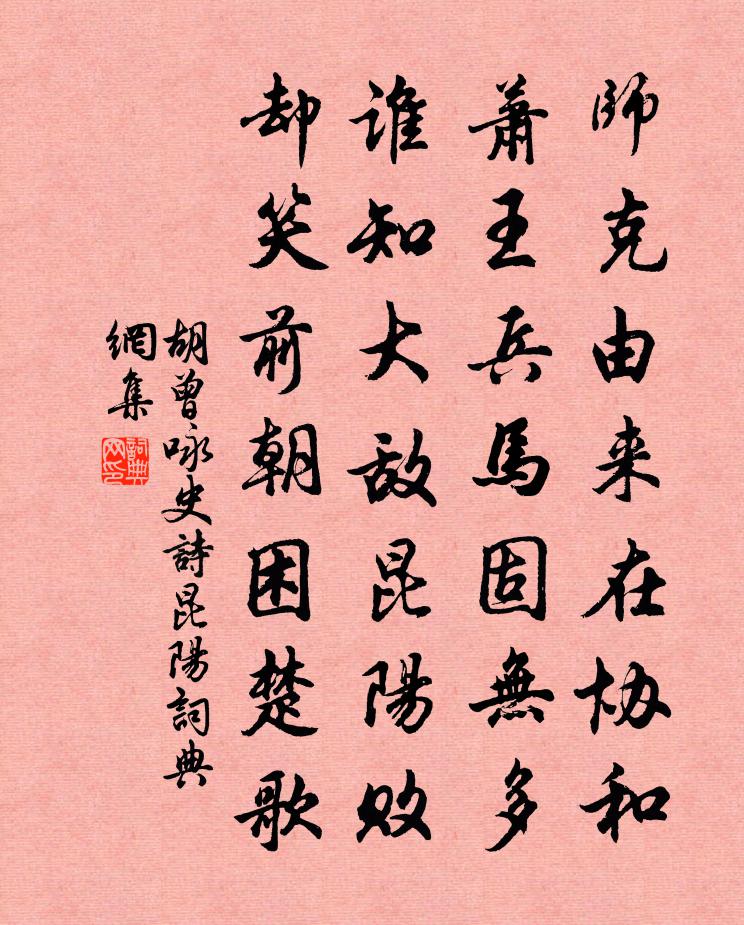 師克由来在协和
蕭王兵馬固無多
誰知大敌昆陽败
却笑前朝困楚歌
胡曾咏史詩昆陽詞典
網集
詞典網印